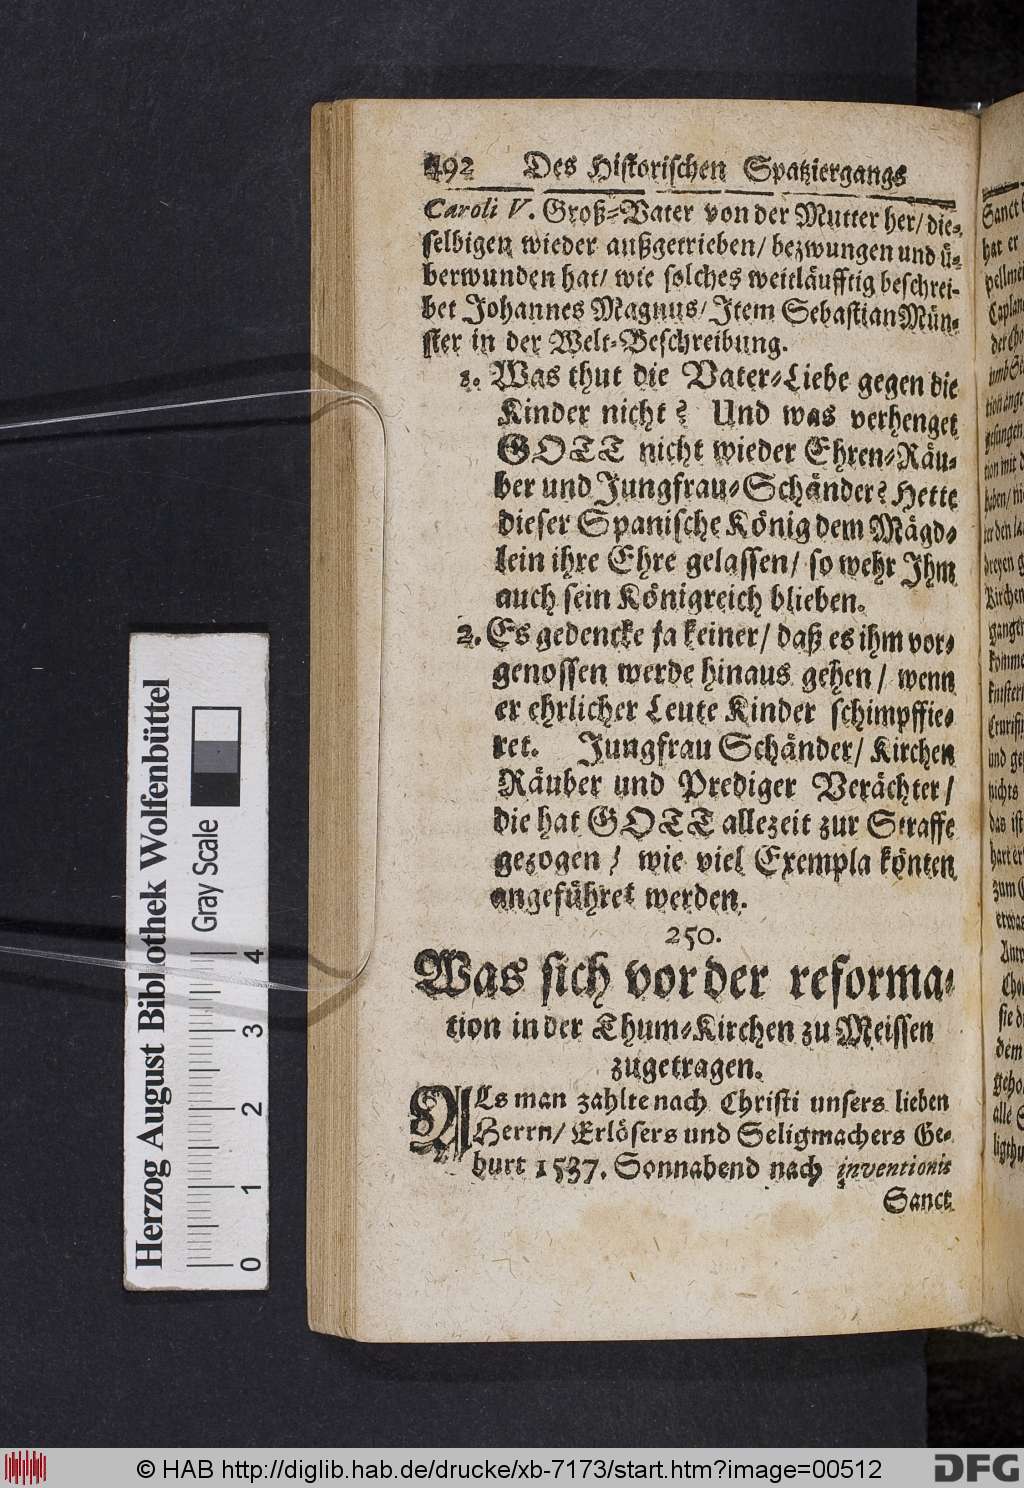 492 Des Historischen Spatziergangs
Caroli V. Groß-Vater von der Mutter her/ die-
selbigen wieder außgetrieben/ bezwungen und ü-
berwunden hat/ wie solches weitläufftig beschrei-
bet Johannes Magnus/ Item Sebastian Mün-
ster in der Welt-Beschreibung.
1. Was thut die Vater-Liebe gegen die
Kinder nicht? Und was verhenget
GOTT nicht wieder Ehren-Räu-
ber und Jungfrau-Schänder? Hette
dieser Spanische König dem Mägd-
lein ihre Ehre gelassen/ so wehr Ihm
auch sein Königreich blieben.
2. Es gedencke ja keiner/ daß es ihm vor-
genossen werde hinaus gehen/ wenn
er ehrlicher Leute Kinder schimpffie-
ret. Jungfrau Schänder/ Kirchen
Räuber und Prediger Verächter/
die hat GOTT allezeit zur Straffe
gezogen/ wie viel Exempla könten
angeführet werden.
250.
Was sich vor der reforma-
tion in der Thum-Kirchen zu Meissen
zugetragen.
ALs man zahlte nach Christi unsers lieben
Herrn/ Erlösers und Seligmachers Ge-
burt 1537. Sonnabend nach inventionis
Sanct
Sanct
hat er
Herzog August Bibliothek Wolfenbüttel
Gray Scale
0 1 2 3 4
© HAB http://diglib.hab.de/drucke/xb-7173/start.htm?image=00512
DFG